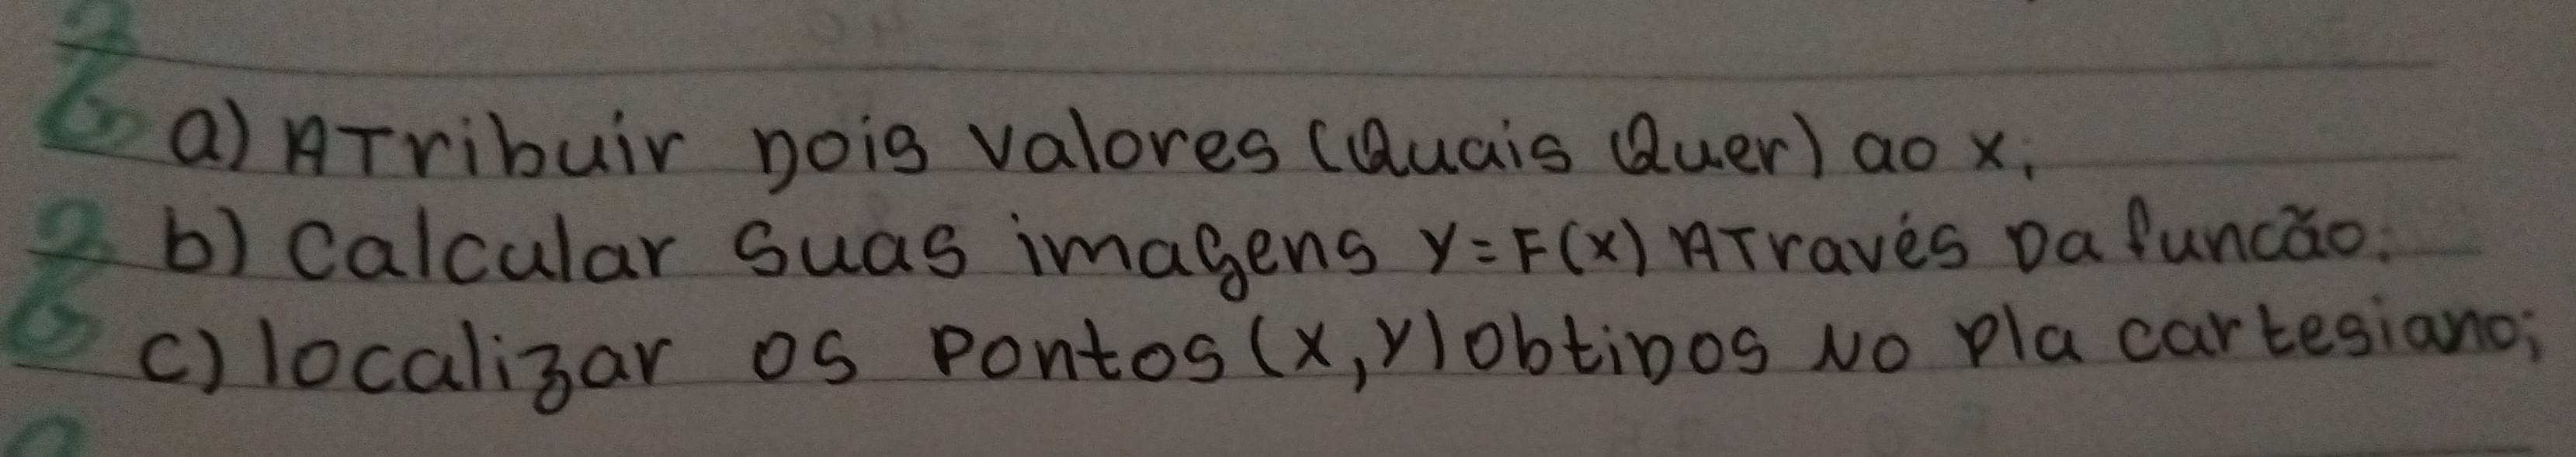 a) ATribuir Dois valores (Quais Quer) ao x,
b) Calcular suas imagens y=F(x) ATravés Da funcão;
c) localizar os Pontos (x,y) obtiDos No Pla cartesiano;